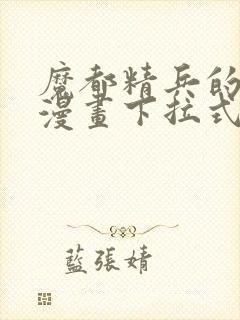 魔都精兵的
漫畫下拉式
藍張婧